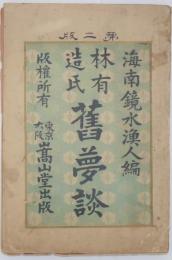 版二第
海南鏡水漁人編
林有
造氏
舊夢談
版權所有
東京
大阪
嵩山堂出版